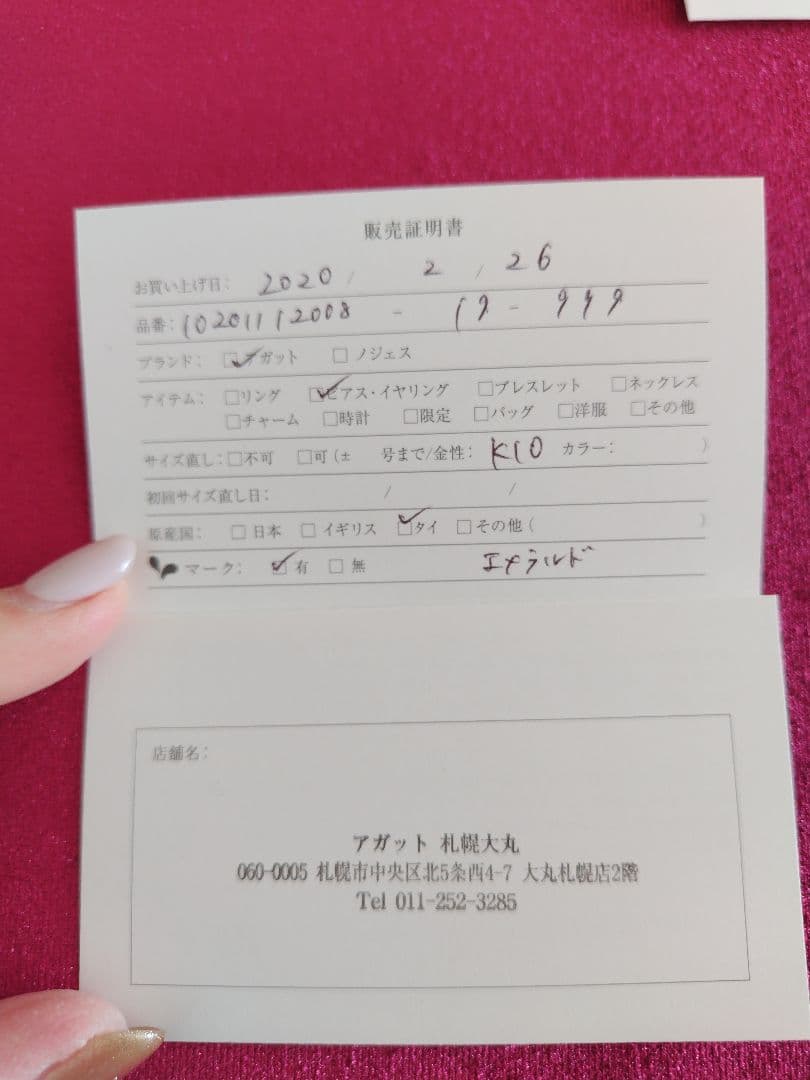 販売証明書
お買い上げ日: 2020 / 2 / 26
品番: 10201112008 - 19 - 999
ブランド: ☑アガット □ノジェス
アイテム: □リング ☑ピアス・イヤリング □ブレスレット □ネックレス
□チャーム □時計 □限定 □バッグ □洋服 □その他
サイズ直し: □不可 □可(± 号まで/金性: K10 カラー: )
初回サイズ直し日: / /
原産国: □日本 □イギリス ☑タイ □その他( )
マーク: ☑有 □無 エメラルド
店舗名:
アガット 札幌大丸
060-0005 札幌市中央区北5条西4-7 大丸札幌店2階
Tel 011-252-3285